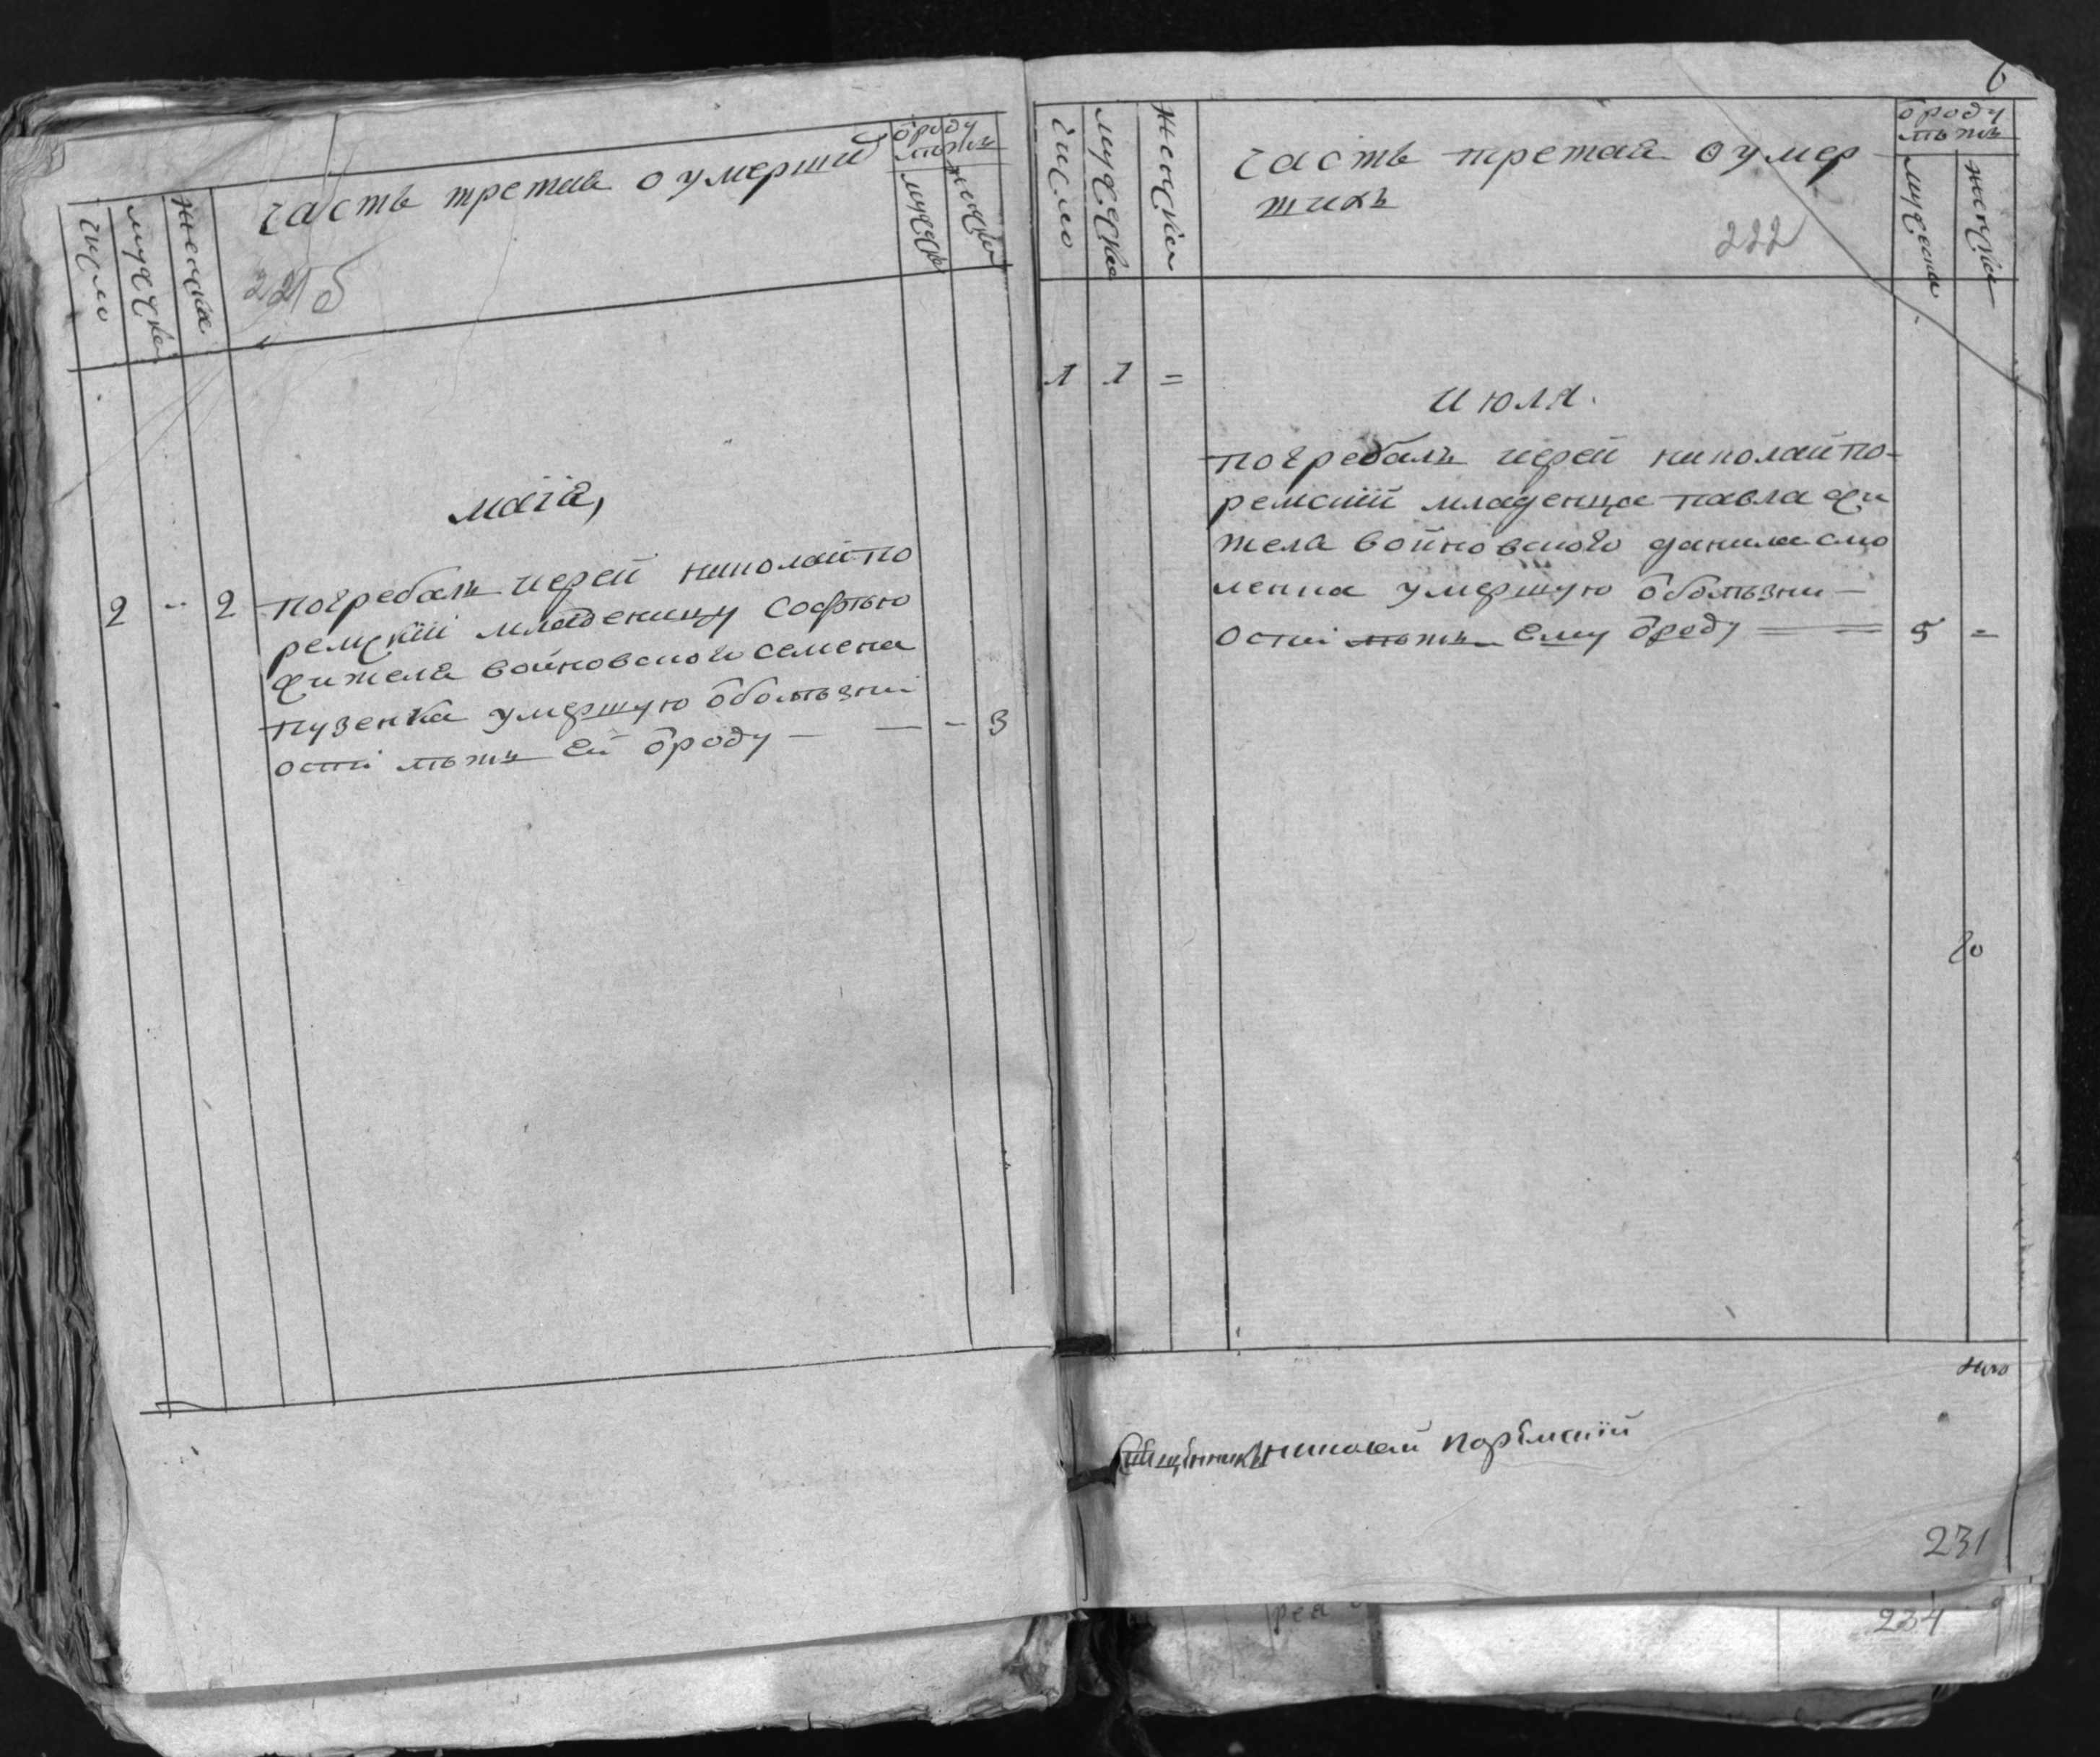 число
мужеска
женска
часть третая о умерших
ѿроду
лѣтъ
мужеска
женска
221б
маіа,
2 - 2 погребалъ иерей николай по
ремскій младеницу софью
жителя войновского семена
пузенка умершую ѿболѣзни
ости лѣтъ ей ѿроду — — - 3
6
число
мужеска
женска
часть третая о умер
шихъ
ѿроду
лѣтъ
мужеска
женска
222
1 1 =
июля.
погребалъ иерей николай по-
ремскій младенца павла жи
теля войновского данила смо
ленка умершую ѿболѣзни —
ости лѣтъ ему ѿроду = 5 =
Священникъ николай порѣмскій
231
234